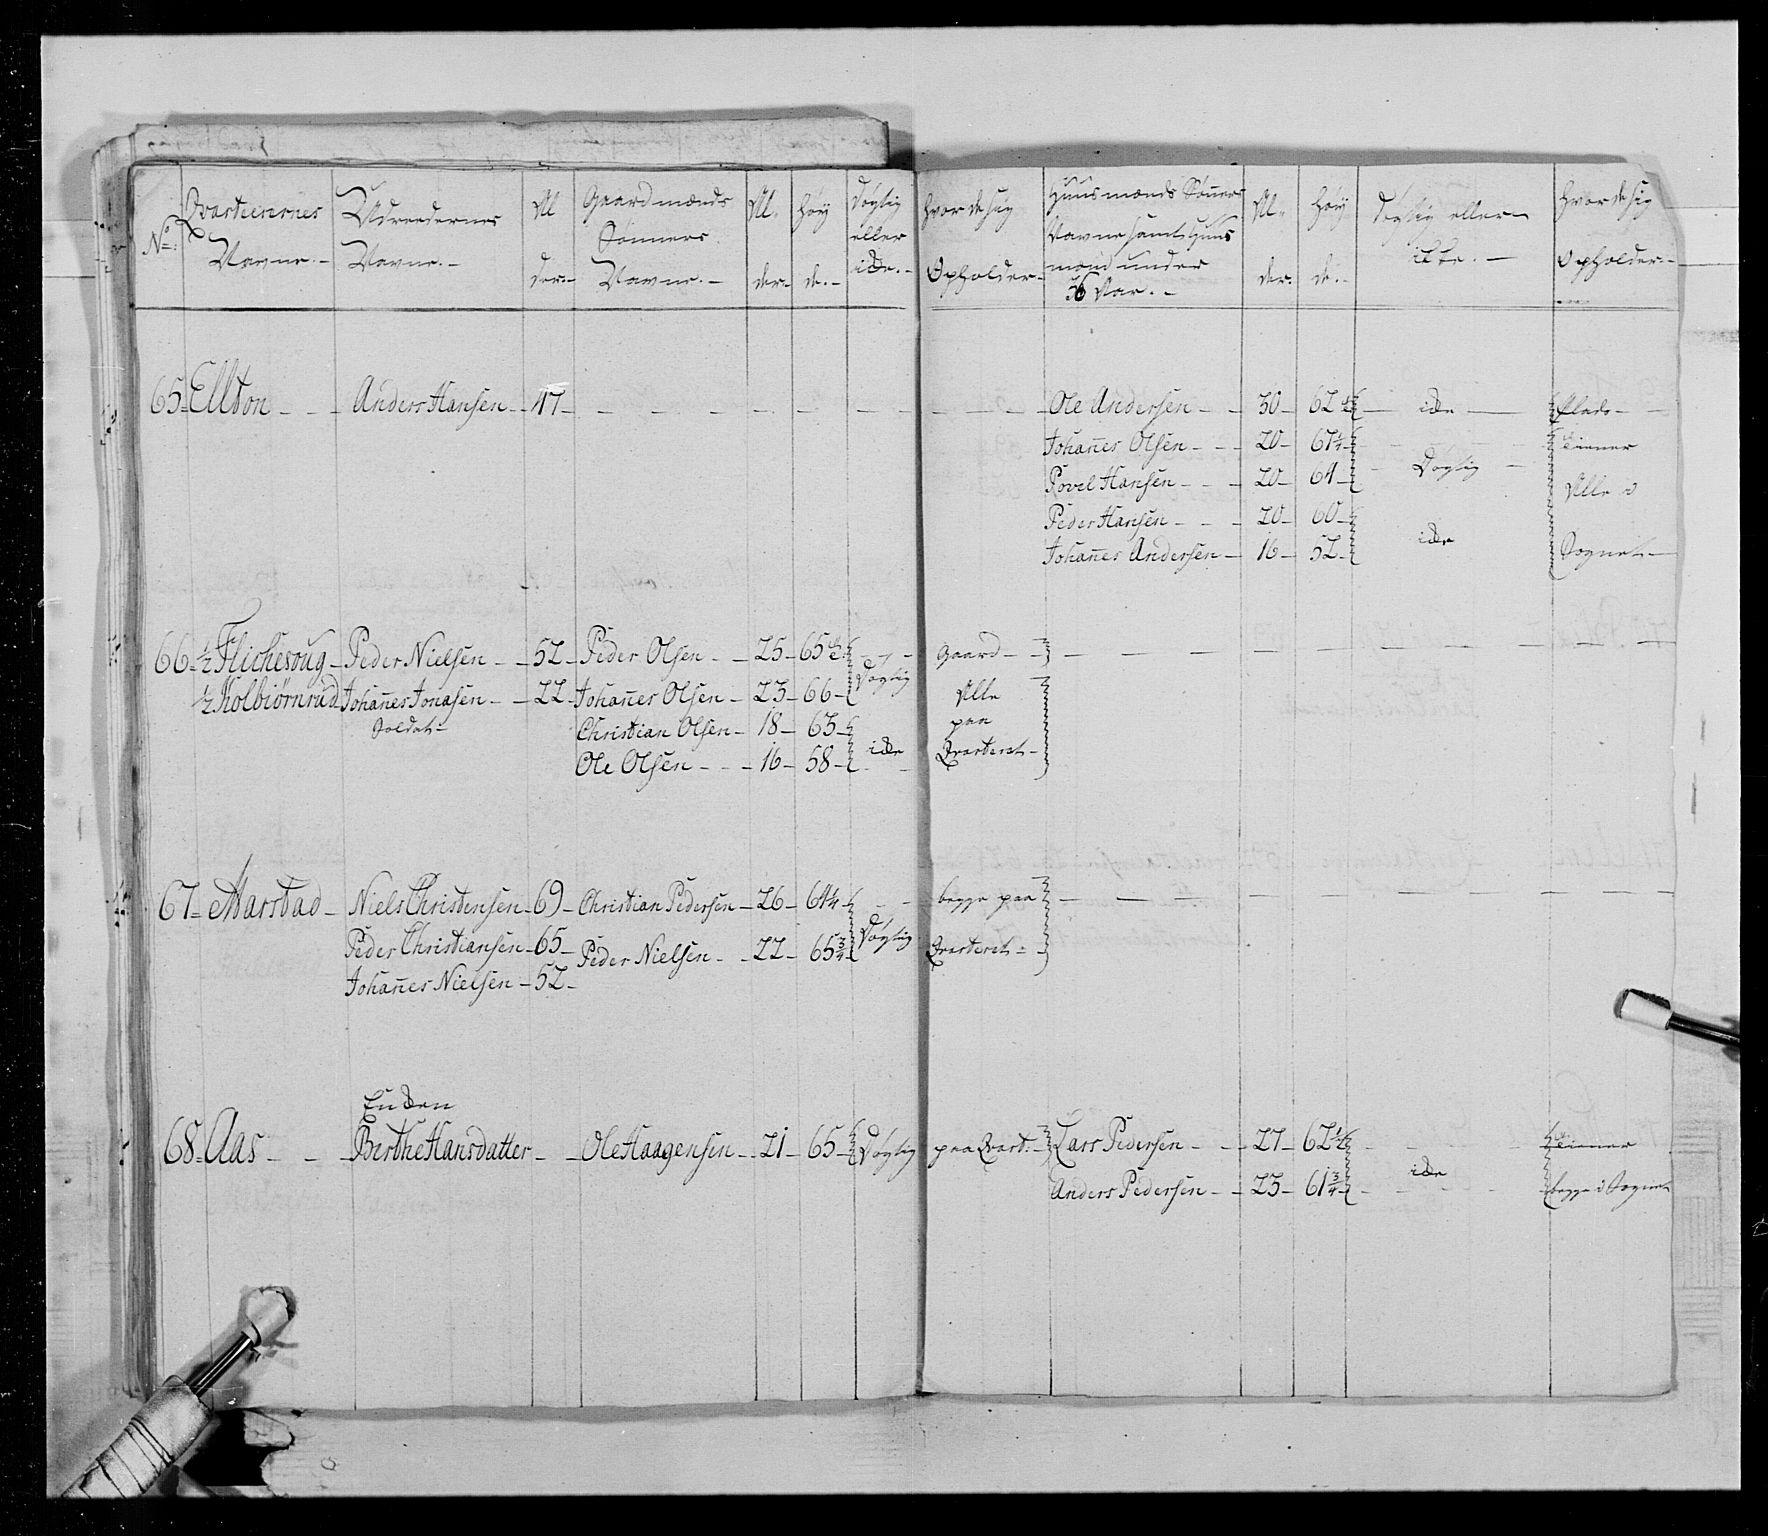 No: Qvarteerernes Navne.- Udreedernes Navne.- Al der.- Gaardmænds Sønners Navne.- Al. der. Høy de.- Døgtig eller ikke.- hvor de sig Opholder.- Huusmænds Sønners Navne samt Huus mænd under 36 Aar.- Al. der. Høy de.- Døgtig eller ikke.- hvor de sig Opholder.-
65. Ellton - - - Anders Hansen - 47 - - - - - - - - - Ole Andersen - - 30 - 62 1/2 - ikke - Plads -
Johañes Olsen - - - 20 - 67 1/4 - tiener
Povel Hansen - - - 20 - 64 - Døgtig - Alle i
Peder Hansen - - - 20 - 60 -
Johañes Andersen - 16 - 52 - ikke Sognet -
66. 1/2 Flichesoug - Peder Nielsen - - 52 - Peder Olsen - - 25 - 65 1/2 - - - Gaard - - - - - - - - -
1/2 Kolbiørnrud Johañes Jonasen - - 22 - Johañes Olsen - 23 - 66 - Døgtig Alle
Soldat - Christian Olsen - 18 - 63 - paa
Ole Olsen - - - 16 - 58 - ikke Qvarteret -
67 - Marstad - Niels Christensen - 69 - Christian Pedersen - 26 - 64 1/4 - - - begge paa - - - - - - - -
Peder Christiansen - 65 - Peder Nielsen - - 22 - 65 3/4 Døgtig Qvarteret - -
Johañes Nielsen - 52 -
Enken
68 - Aas - - - Berthe Hansdatter - - Ole Haagensen - - 21 - 65 - Døgtig paa Qvart: - Lars Pedersen - - 27 - 62 1/2 - - - tiener
Anders Pedersen - - 23 - 61 3/4 - ikke - begge i Sognet